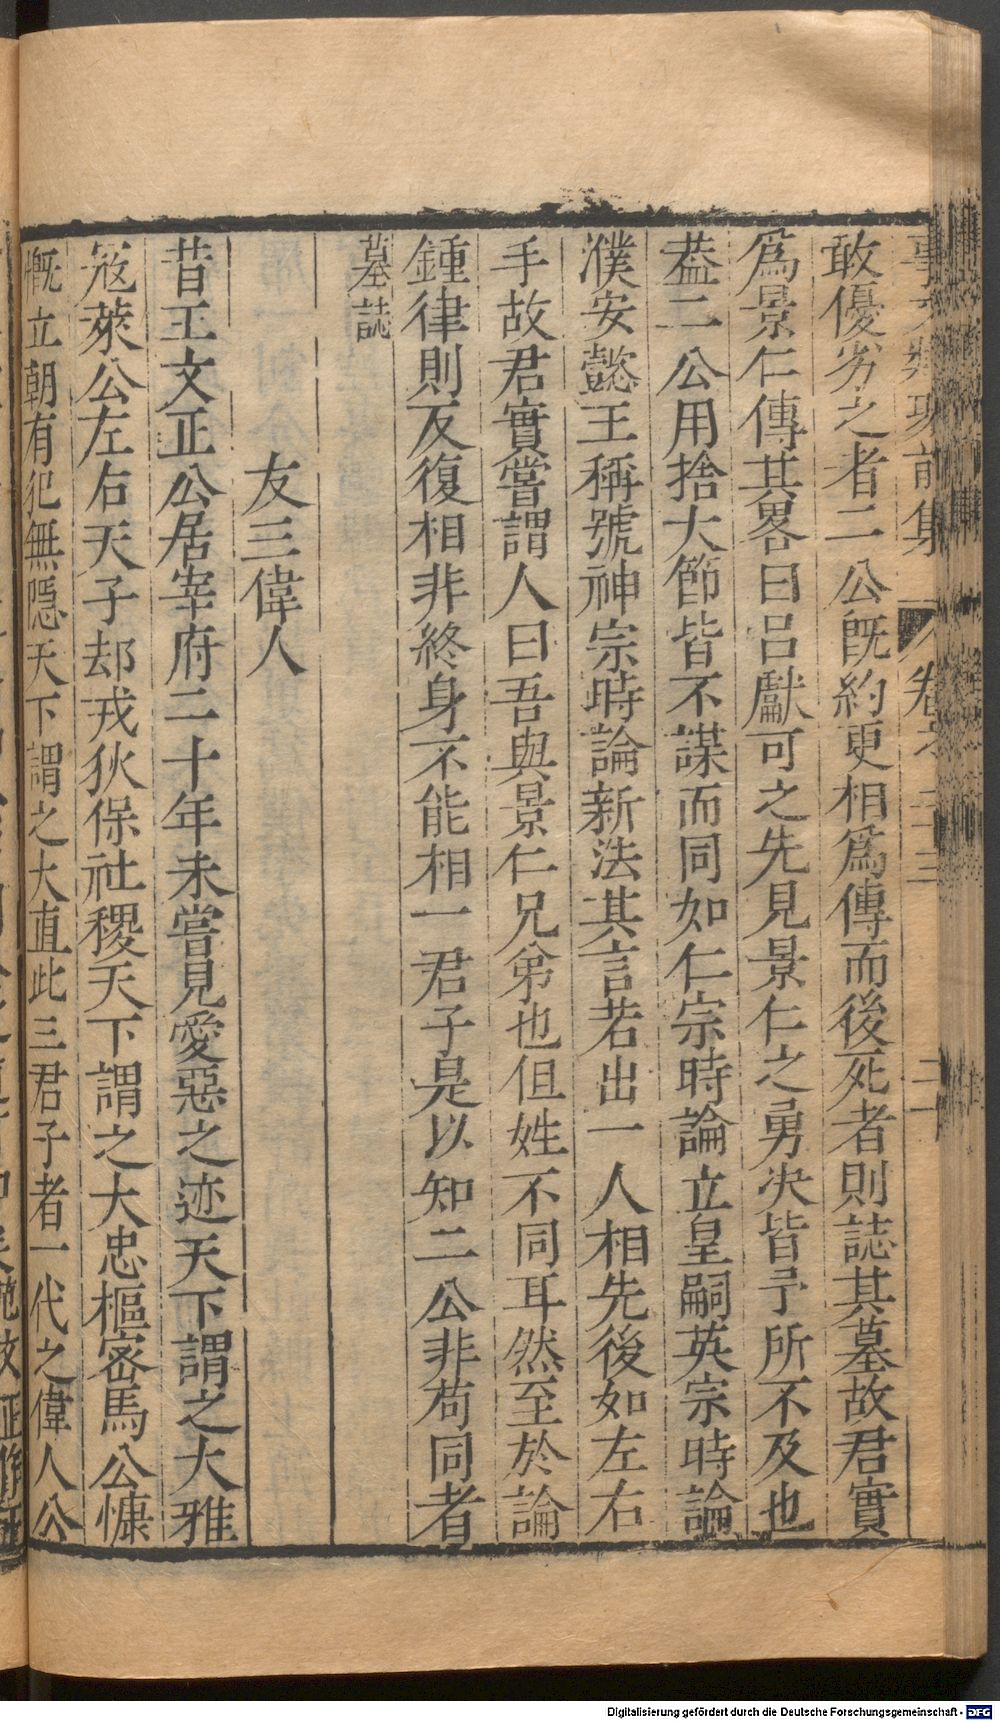 事文類聚前集 卷之二十三 二
敢優劣之者二公既約更相爲傳而後死者則誌其墓故君實
爲景仁傳其畧曰吕獻可之先見景仁之勇決皆予所不及也
葢二公用捨大節皆不謀而同如仁宗時論立皇嗣英宗時論
濮安懿王稱號神宗時論新法其言若出一人相先後如左右
手故君實嘗謂人曰吾與景仁兄弟也但姓不同耳然至於論
鍾律則反復相非終身不能相一君子是以知二公非苟同者
墓誌
友三偉人
昔王文正公居宰府二十年未嘗見愛惡之迹天下謂之大雅
寇萊公左右天子却戎狄保社稷天下謂之大忠樞密馬公慷
慨立朝有犯無隱天下謂之大直此三君子者一代之偉人公
Digitalisierung gefördert durch die Deutsche Forschungsgemeinschaft - DFG